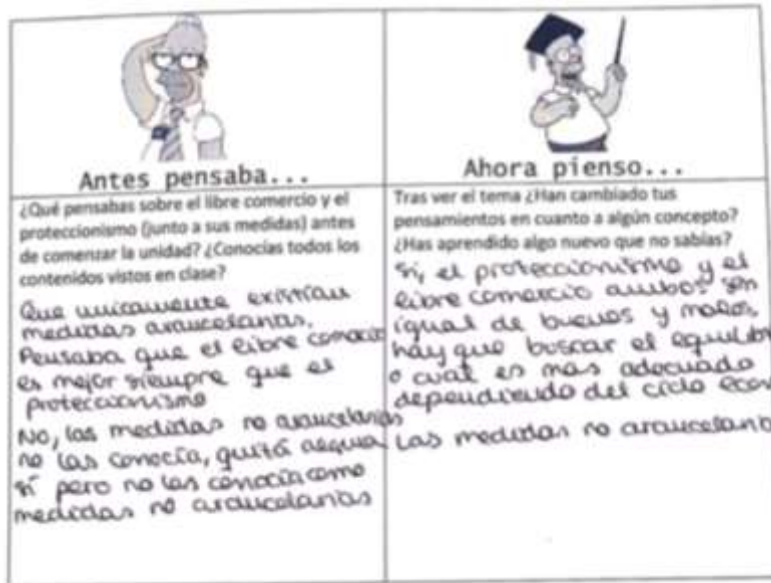 Antes pensaba...
¿Qué pensabas sobre el libre comercio y el
proteccionismo (junto a sus medidas) antes
de comenzar la unidad? ¿Conocías todos los
contenidos vistos en clase?
Que unicamente existían
medidas arancelarias.
Pensaba que el libre comercio
es mejor siempre que el
proteccionismo
No, las medidas no arancelarias
no las conocía, quizá alguna
sí pero no las conocía como
medidas no arancelarias
Ahora pienso...
Tras ver el tema ¿Han cambiado tus
pensamientos en cuanto a algún concepto?
¿Has aprendido algo nuevo que no sabías?
Sí, el proteccionismo y el
libre comercio ambos son
igual de buenos y malos
hay que buscar el
o cual es mas adecuado
dependiendo del ciclo
Las medidas no